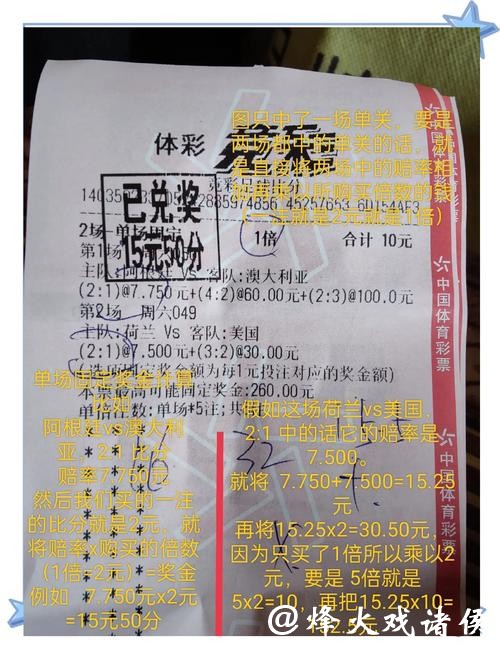 图只中了一场单关，要是
两场都中的单关的话，就
是直接将两场中的赔率相
（一注就是2元就是1倍）
体彩
已兑奖
15元50分
2场-单场固定
1倍
合计 10元
第1场
主队:阿根廷 Vs 客队:澳大利亚
(2:1)@7.750元+(4:2)@60.00元+(2:3)@100.0元
第2场 周六049
主队:荷兰 Vs 客队:美国
(2:1)@7.500元+(3:2)@30.00元
(选项固定奖金额为每1元投注对应的奖金额)
本票最高可能固定奖金:260.00元
单倍注数:单场*5注;共
单场固定奖金计算
比如
阿根廷vs澳大利
亚，2:1 比分
赔率7.750元
然后我们买的一注
的比分就是2元，就
将赔率x购买的倍数
（1倍=2元）=奖金
例如 7.750元x2元
=15元50分
假如这场荷兰vs美国，
2:1 中的话它的赔率是
7.500。
就将 7.750+7.500=15.25
元
再将15.25x2=30.50元，
因为只买了1倍所以乘以2
元，要是 5倍就是
5x2=10，再把15.25x10=
中国体育彩票
中国体育彩票
@烽火戏诸侯